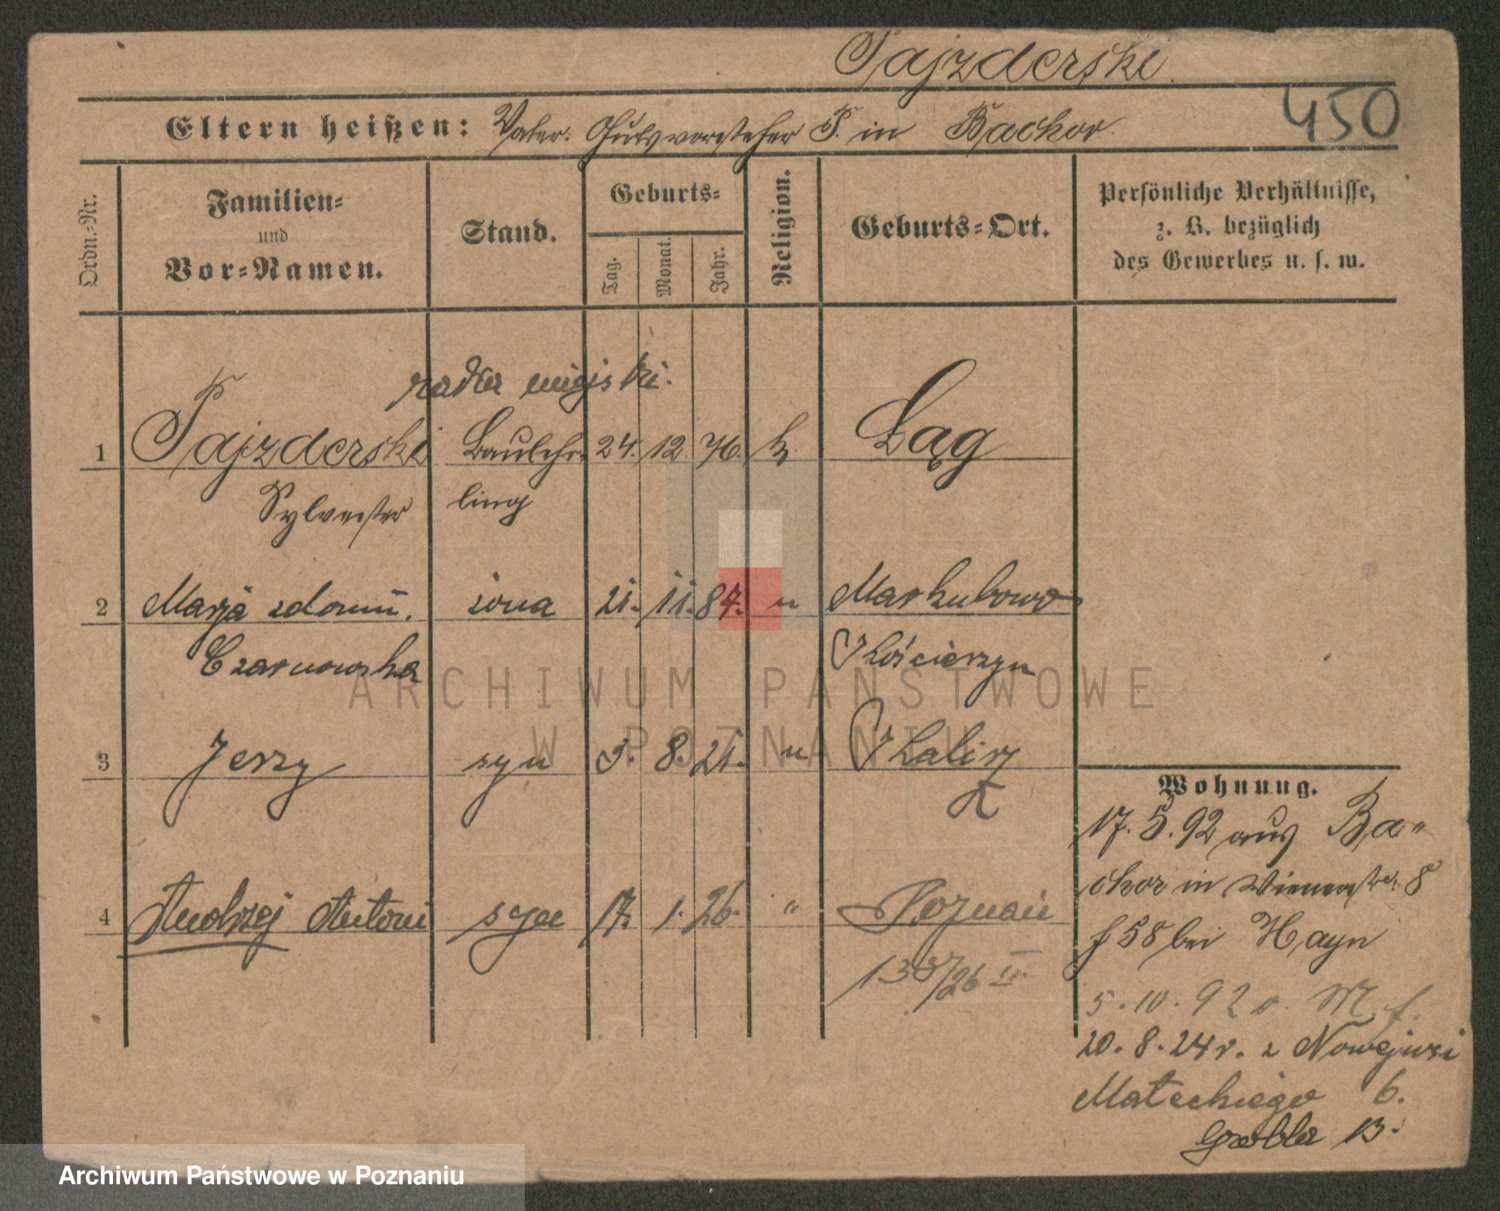 Pajzderski
450
Eltern heißen: Vater: Gutsvorsteher P. in Bachor.
Ordn.-Nr.
Familien-
und
Vor-Namen.
Stand.
Geburts-
Tag.
Monat.
Jahr.
Religion.
Geburts-Ort.
Persönliche Verhältnisse,
z. B. bezüglich
des Gewerbes u. s. w.
radca miejski.
1 Pajzderski Baulehr- 24. 12. 76. k. Łąg
Sylvester ling
2 Marja z dom. żona 21. 11. 87. " Markubowo
Czarnowska Kościerzyn
ARCHIWUM PAŃSTWOWE
W POZNANIU
3 Jerzy syn 3. 8. 21. " Kalisz
Wohnung.
17. 5. 92 aus Ba-
chor in Wienerstr. 8
b. 58 bei Hayn
4 Andrzej Antoni syn 17. 1. 26. " Poznań
138/26 III.
5. 10. 92
20. 8. 24 r. z Nowejwsi
Małeckiego 6.
Grobla 13.
Archiwum Państwowe w Poznaniu